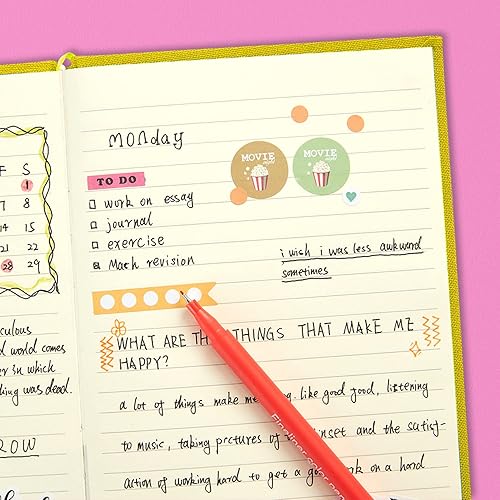 F S
1
7 8
14 15
21 22
28 29
culous
d world comes
er in which
king was dead.
ROW
monday
TO DO
work on essay
journal
exercise
Math revision
MOVIE
MOVIE
i wish i was less awkward
sometimes
WHAT ARE THE THINGS THAT MAKE ME
HAPPY?
a lot of things make me like good food, listening
to music, taking pictures of inset and the satisf-
action of working hard to get a good on a hard
Fineliner